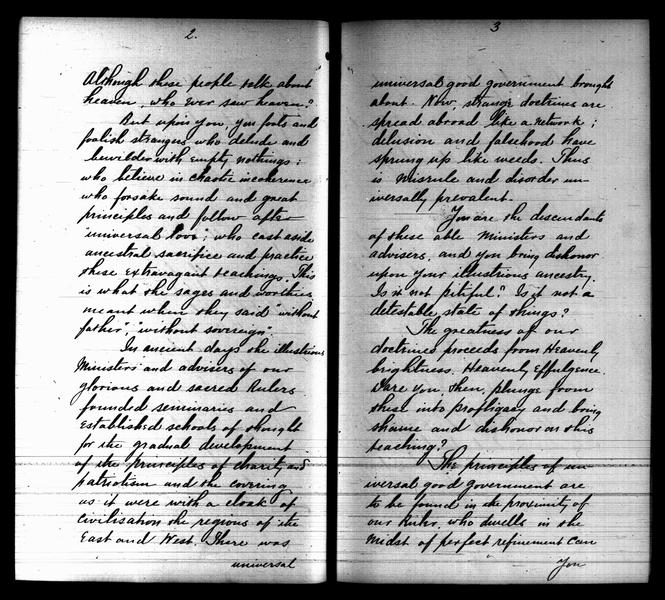 2.
Although these people talk about
heaven, who ever saw heaven?
But upon you you fools and
foolish strangers who delude and
bewilder with empty nothings:
who believe in chaotic incoherence
who forsake sound and great
principles and follow after
"universal love"; who cast aside
ancestral sacrifice and practice
these extravagant teachings. This
is what the sages and worthies
meant when they said "without
father", "without sovereign".
In ancient days the illustrious
Ministers and advisers of our
glorious and sacred Rulers
founded seminaries and
established schools of thought
for the gradual development
of the principles of charity and
patriotism and the covering
as it were with a cloak of
civilisation the regions of the
East and West. There was
universal
3
universal good government brought
about. Now, strange doctrines are
spread abroad like a network;
delusion and falsehood have
sprung up like weeds. Thus
is misrule and disorder un-
iversally prevalent.
You are the descendants
of these able Ministers and
advisers, and you bring dishonor
upon your illustrious ancestry.
Is it not pitiful? Is it not a
detestable state of things?
The greatness of our
doctrines proceeds from Heavenly
brightness. Heavenly Effulgence.
Dare you, then, plunge from
these into profligacy and bring
shame and dishonor on this
teaching?
The principles of un-
iversal good government are
to be found in the proximity of
our ruler, who dwells in the
midst of perfect refinement Can
You